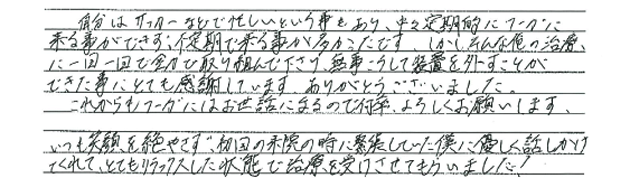 自分はサッカーなどで忙しいという事もあり、中々定期的にフーガに
来る事ができず、不定期で来る事が多かったです。しかしそんな僕の治療
に一回一回で全力で取り組んで下さり、無事こうして装置を外すことが
できた事にとても感謝しています。ありがとうございました。
これからもフーガにはお世話になるので何卒、よろしくお願いします。
いつも笑顔を絶やさず、初回の来院の時に緊張していた僕に優しく話しかけ
てくれて、とてもリラックスした状態で治療を受けさせてもらいました!